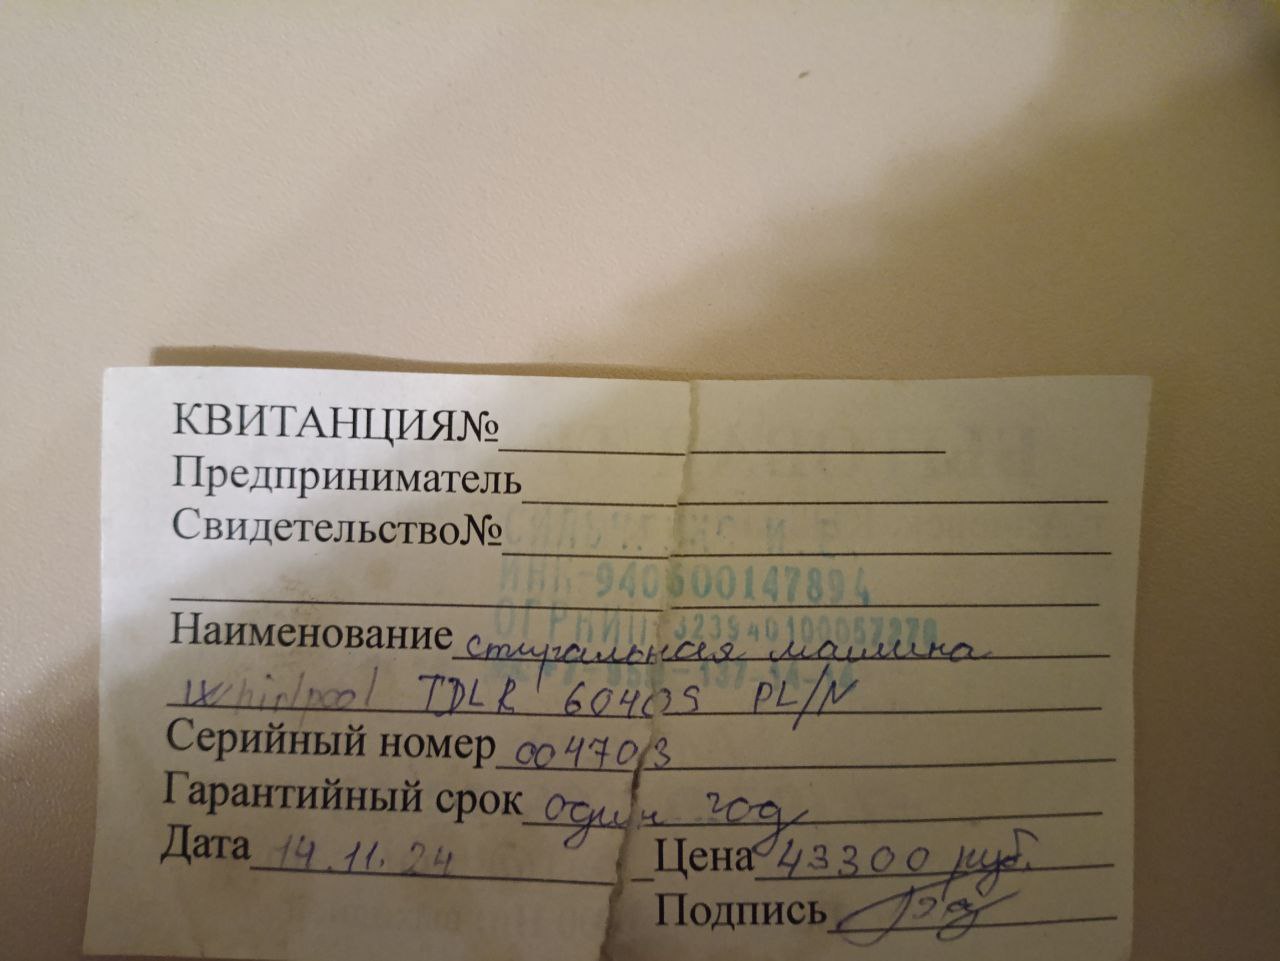 КВИТАНЦИЯ№
Предприниматель
Свидетельство№
СИЛЬЧЕНКО И.В.
ИНН-940600147894
ОГРНИП 323940100057278
Наименование стиральная машина
Whirlpool TDLR 6040S PL/N
Серийный номер 004703
Гарантийный срок один год
Дата 14.11.24 Цена 43300 руб.
Подпись